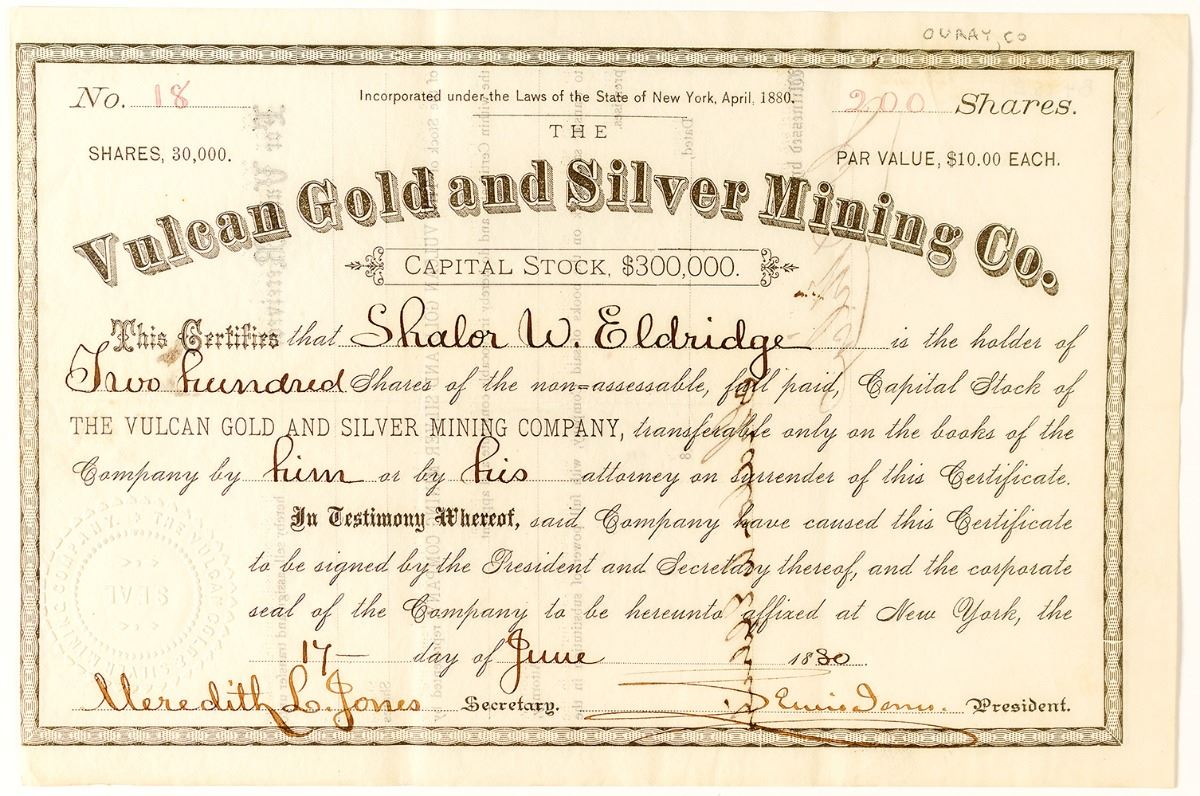 OURAY, CO
No. 18
Incorporated under the Laws of the State of New York, April, 1880.
200 Shares.
SHARES, 30,000.
THE
PAR VALUE, $10.00 EACH.
Vulcan Gold and Silver Mining Co.
CAPITAL STOCK, $300,000.
This Certifies that Shalor W. Eldridge is the holder of
Two hundred Shares of the non=assessable, full paid, Capital Stock of
THE VULCAN GOLD AND SILVER MINING COMPANY, transferable only on the books of the
Company by him or by his attorney on surrender of this Certificate.
In Testimony Whereof, said Company have caused this Certificate
to be signed by the President and Secretary thereof, and the corporate
seal of the Company to be hereunto affixed at New York, the
17 — day of June 1880.
Meredith L. Jones Secretary. President.
THE VULCAN GOLD & SILVER MINING COMPANY.
SEAL